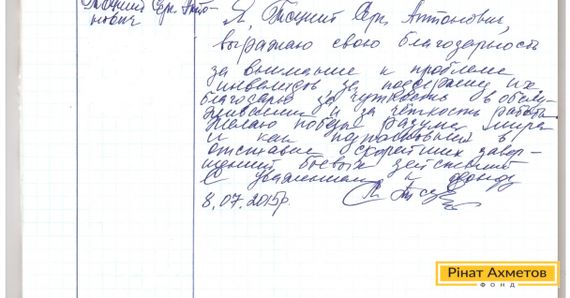 Сер. Анто-
нович
Я, Сер. Антонович,
выражаю свою благодарность
за внимание к проблеме
инвалидов, за поддержку их
благодарю за чуткость в обслу-
живании и за чёткость работы
желаю победы разума, мира
и как в
отставке скорейших завер-
шений боевых действий
С уважением к фонду
8.07.2015р.
Рінат Ахметов
ФОНД